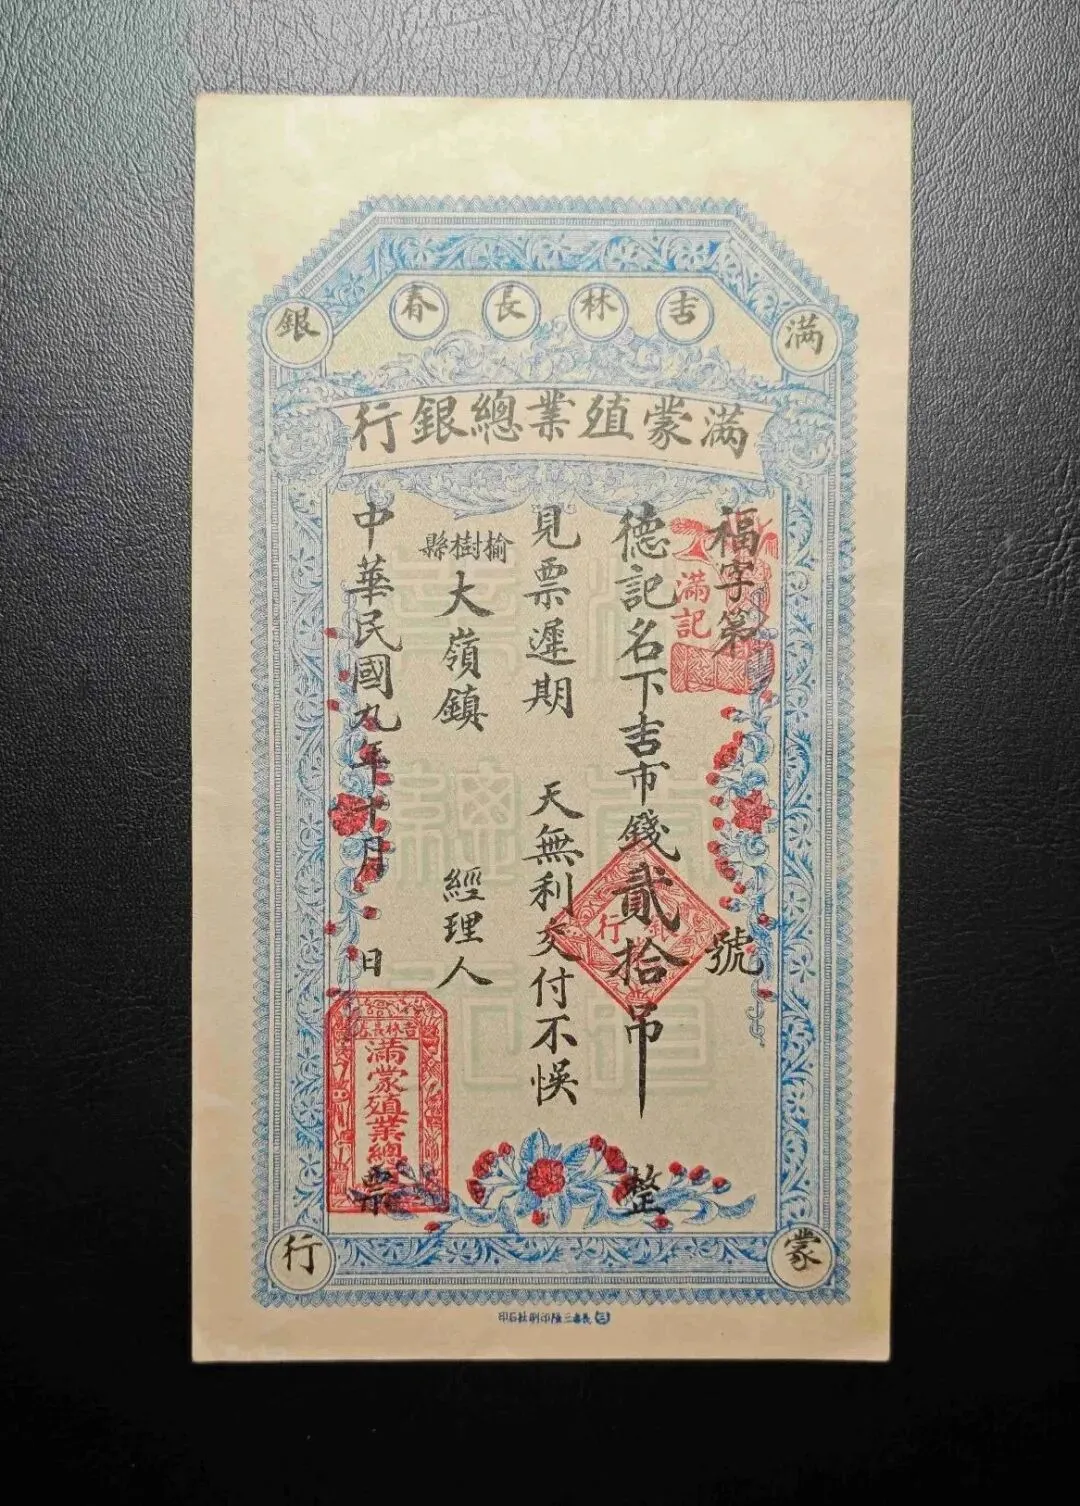 吉林長春
滿蒙銀行
滿蒙殖業總銀行
福字第 號
德記名下吉市錢貳拾吊 整
見票遲期 天無利交付不悞
榆樹縣
大嶺鎮 經理人
中華民國九年十月 日 票
滿記
銀行
吉林長春
滿蒙殖業總
長春三陸印刷社石印